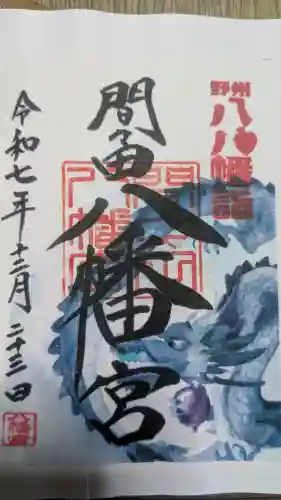 野州
八八幡詣
間々田
八幡宮
令和七年十二月二十三日